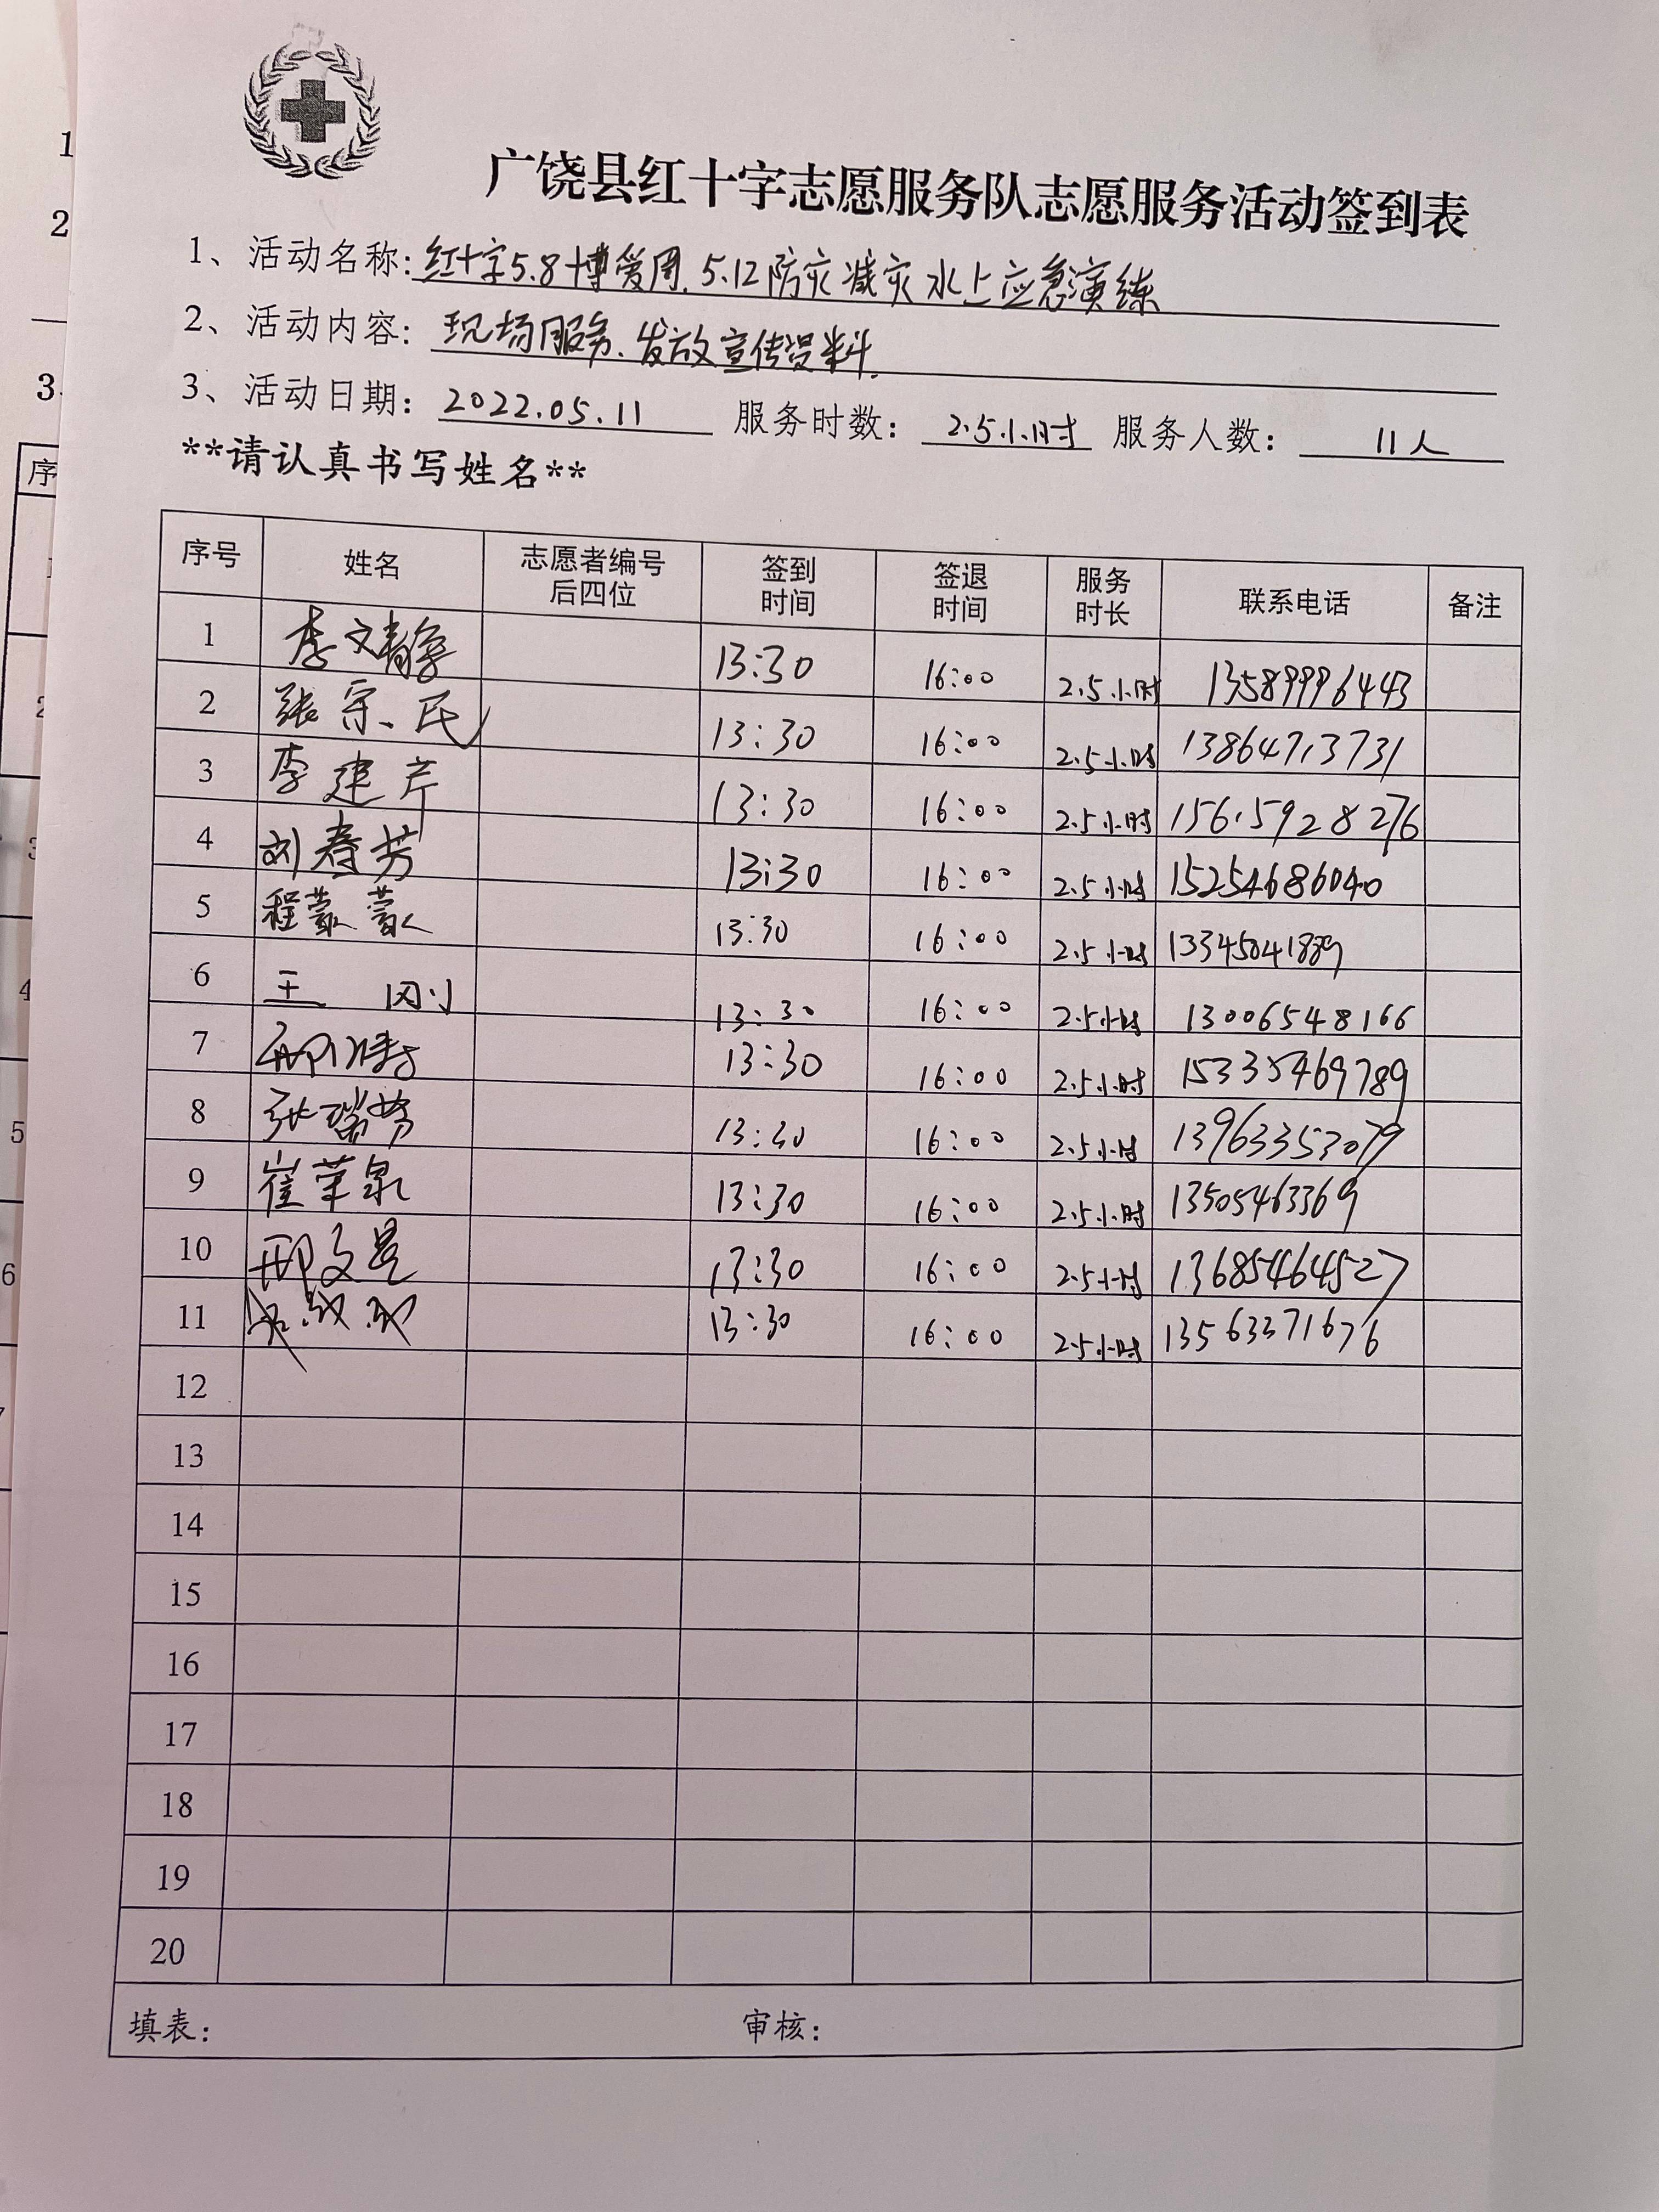 广饶县红十字志愿服务队志愿服务活动签到表
1、活动名称: 红十字5.8博爱周. 5.12防灾减灾水上应急演练
2、活动内容: 现场服务、发放宣传资料.
3、活动日期: 2022.05.11 服务时数: 2.5小时 服务人数: 11人
**请认真书写姓名**
序号 姓名 志愿者编号后四位 签到时间 签退时间 服务时长 联系电话 备注
1 李文静 13:30 16:00 2.5小时 13589996443
2 张宗民 13:30 16:00 2.5小时 13864713731
3 李建芹 13:30 16:00 2.5小时 15615928276
4 刘春芳 13:30 16:00 2.5小时 15254686040
5 程蒙蒙 13:30 16:00 2.5小时 13345041889
6 王刚 13:30 16:00 2.5小时 13006548166
7 13:30 16:00 2.5小时 15335469789
8 张瑞芳 13:30 16:00 2.5小时 13963353079
9 崔荣泉 13:30 16:00 2.5小时 13505463369
10 邢文星 13:30 16:00 2.5小时 13685464527
11 13:30 16:00 2.5小时 13563371676
12
13
14
15
16
17
18
19
20
填表: 审核: